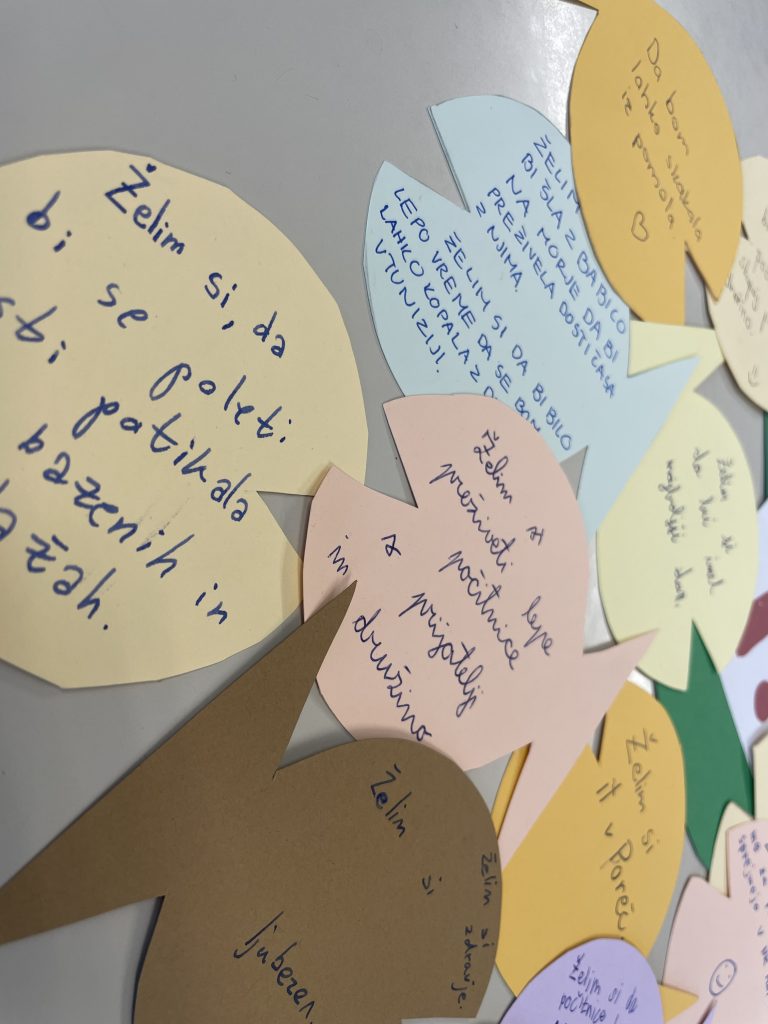 Da bom
lahko skakala
iz pomola.
♡
ŽELIM
BI ŠLA Z BABICO
NA MORJE DA BI
PREŽIVELA DOSTI ČASA
Z NJIMA.
ŽELIM SI DA BI BILO
LEPO VREME DA SE BOM
LAHKO KOPALA Z
V TUNIZIJI.
Želim si, da
bi se poleti
potikala
bazenih in
Želim si lepe
preživeti počitnice
s prijatelji
in družino
Želim si
da bi imel
najboljši dan.
Želim si
it v Poreč
Želim si
ljubezen
Želim si
zdravje.
Želim si da
počitnice